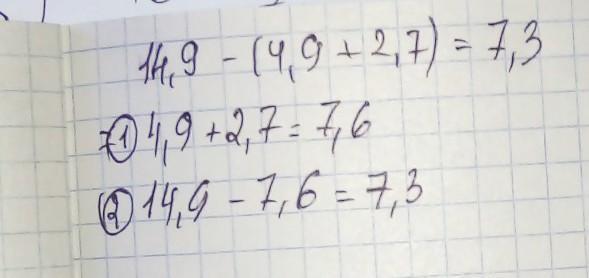 14,9 - (4,9 + 2,7) = 7,3
1) 4,9 + 2,7 = 7,6
2) 14,9 - 7,6 = 7,3